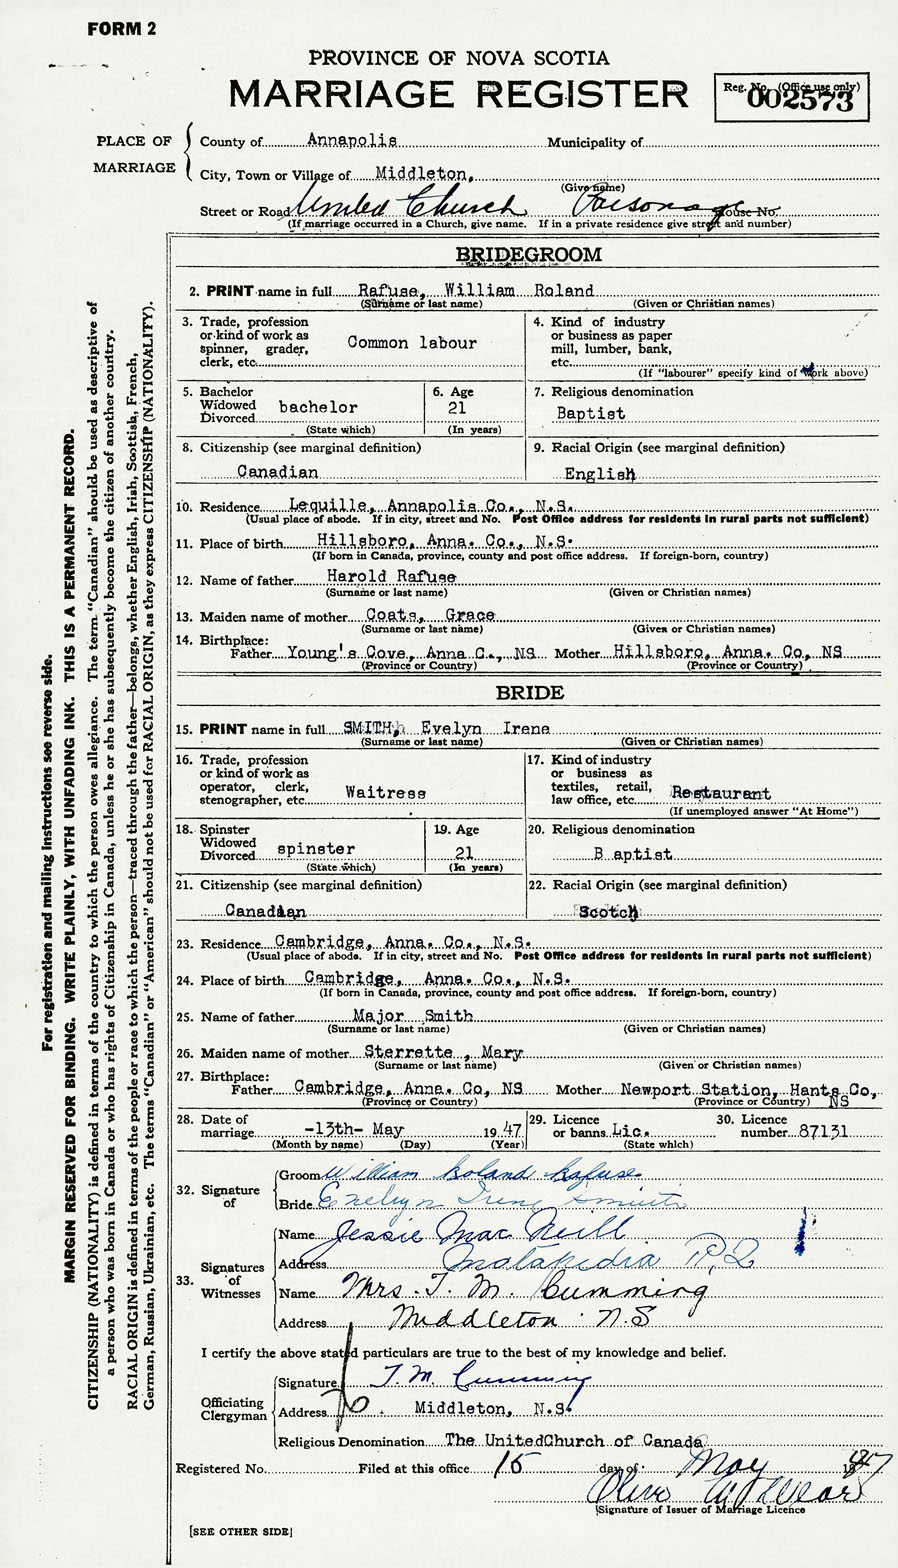 FORM 2
PROVINCE OF NOVA SCOTIA
MARRIAGE REGISTER
Reg. No. (Office use only)
002573
PLACE OF MARRIAGE
County of Annapolis Municipality of
City, Town or Village of Middleton,
(Give name)
Street or Road United Church Parsonage House No.
(If marriage occurred in a Church, give name. If in a private residence give street and number)
BRIDEGROOM
2. PRINT name in full Rafuse, William Roland
(Surname or last name) (Given or Christian names)
3. Trade, profession
or kind of work as
spinner, grader,
clerk, etc. Common labour
4. Kind of industry
or business as paper
mill, lumber, bank,
etc.
(If "labourer" specify kind of work above)
5. Bachelor
Widowed
Divorced bachelor
(State which)
6. Age
21
(In years)
7. Religious denomination
Baptist
8. Citizenship (see marginal definition)
Canadian
9. Racial Origin (see marginal definition)
English
10. Residence Lequille, Annapolis Co., N.S.
(Usual place of abode. If in city, street and No. Post Office address for residents in rural parts not sufficient)
11. Place of birth Hillsboro, Anna. Co., N.S.
(If born in Canada, province, county and post office address. If foreign-born, country)
12. Name of father Harold Rafuse
(Surname or last name) (Given or Christian names)
13. Maiden name of mother Coats, Grace
(Surname or last name) (Given or Christian names)
14. Birthplace:
Father Young's Cove, Anna C., NS Mother Hillsboro, Anna. Co, NS
(Province or Country) (Province or Country)
BRIDE
15. PRINT name in full SMITH, Evelyn Irene
(Surname or last name) (Given or Christian names)
16. Trade, profession
or kind of work as
operator, clerk,
stenographer, etc. Waitress
17. Kind of industry
or business as
textiles, retail,
law office, etc. Restaurant
(If unemployed answer "At Home")
18. Spinster
Widowed
Divorced spinster
(State which)
19. Age
21
(In years)
20. Religious denomination
B aptist
21. Citizenship (see marginal definition)
Canadian
22. Racial Origin (see marginal definition)
Scotch
23. Residence Cambridge, Anna. Co., N.S.
(Usual place of abode. If in city, street and No. Post Office address for residents in rural parts not sufficient)
24. Place of birth Cambridge, Anna. Co., N.S.
(If born in Canada, province, county and post office address. If foreign-born, country)
25. Name of father Major Smith
(Surname or last name) (Given or Christian names)
26. Maiden name of mother Sterrette , Mary
(Surname or last name) (Given or Christian names)
27. Birthplace:
Father Cambridge, Anna. Co, NS Mother Newport Station, Hants Co,
(Province or Country) (Province or Country) NS
28. Date of
marriage -13th- May 1947
(Month by name) (Day) (Year)
29. Licence
or banns Lic.
(State which)
30. Licence
number 87131
32. Signature of
Groom William Roland Rafuse
Bride Evelyn Irene Smith
33. Signatures of Witnesses
Name Jessie MacNeill
Address Matapedia P.Q
Name Mrs. T. M. Cumming
Address Middleton N.S
I certify the above stated particulars are true to the best of my knowledge and belief.
Officiating Clergyman
Signature T. M. Cumming
Address Middleton, N.S.
Religious Denomination The UnitedChurch of Canada
Registered No. Filed at this office 15 day of May 1947
Signature of Issuer of Marriage Licence
[SEE OTHER SIDE]
For registration and mailing instructions see reverse side.
MARGIN RESERVED FOR BINDING. WRITE PLAINLY, WITH UNFADING INK. THIS IS A PERMANENT RECORD.
CITIZENSHIP (NATIONALITY) is defined in terms of the country to which the person owes allegiance. The term "Canadian" should be used as descriptive of
a person who was born in Canada or who has rights of Citizenship in Canada, unless he or she has subsequently become the citizen of another country.
RACIAL ORIGIN is defined in terms of the people or race to which the person—traced through the father—belongs, whether English, Irish, Scottish, French,
German, Russian, Ukrainian, etc. The terms "Canadian" or "American" should not be used for RACIAL ORIGIN, as they express CITIZENSHIP (NATIONALITY).